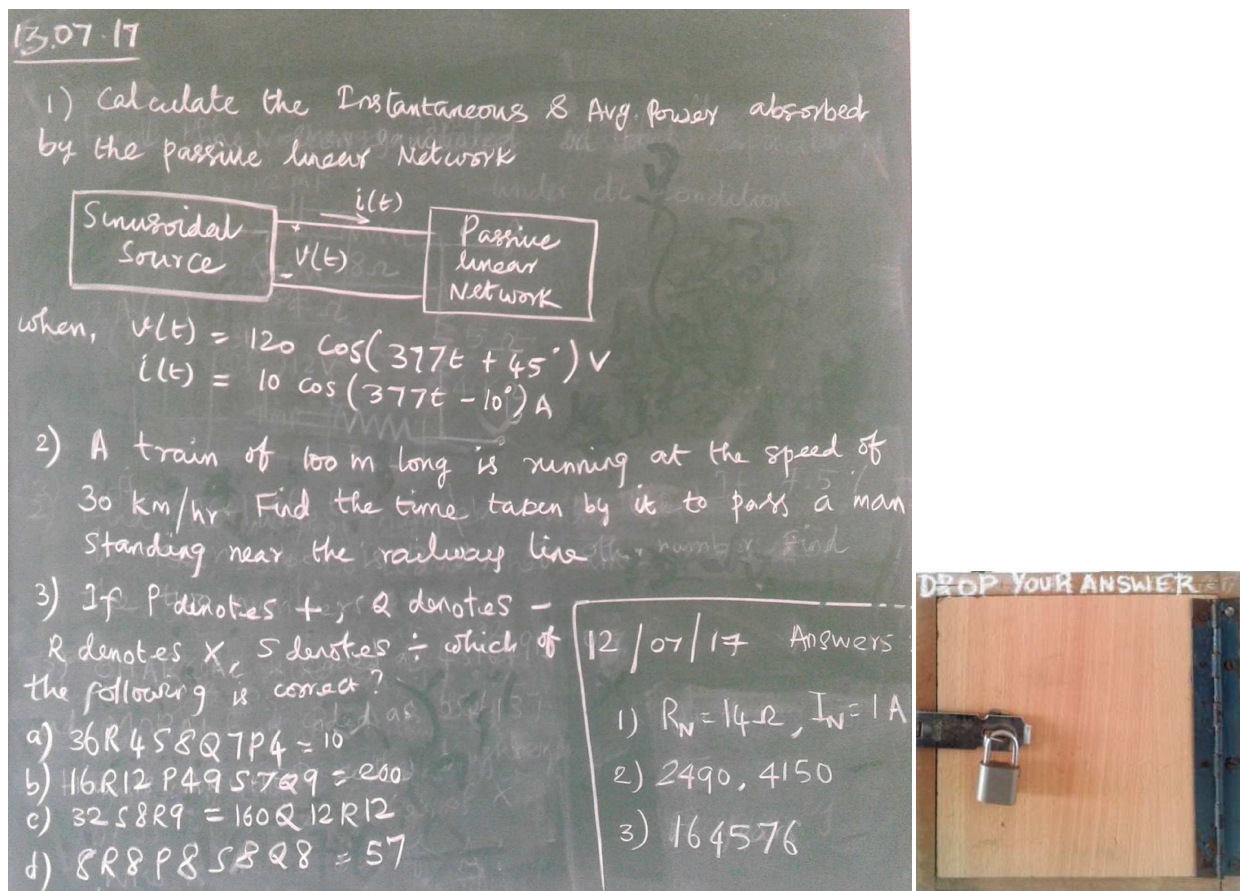 13.07.17
1) Calculate the Instantaneous & Avg. Power absorbed
by the passive linear Network
i(t)
Sinusoidal
Source
+
v(t)
-
Passive
linear
Network
when, v(t) = 120 cos(377t + 45°) V
i(t) = 10 cos(377t - 10°) A
2) A train of 100 m long is running at the speed of
30 km/hr. Find the time taken by it to pass a man
standing near the railway line
3) If P denotes +, Q denotes -
R denotes ×, S denotes ÷ which of
the following is correct?
a) 36R4S8Q7P4 = 10
b) 16R12P49S7Q9 = 200
c) 32S8R9 = 160Q12R12
d) 8R8P8S8Q8 = 57
12/07/17 Answers:
1) R_N = 14Ω, I_N = 1A
2) 2490, 4150
3) 164576
DROP YOUR ANSWER